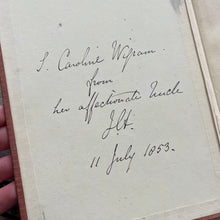 S. Caroline Wigram.
from
her affectionate Uncle
J.H.
11 July 1853.